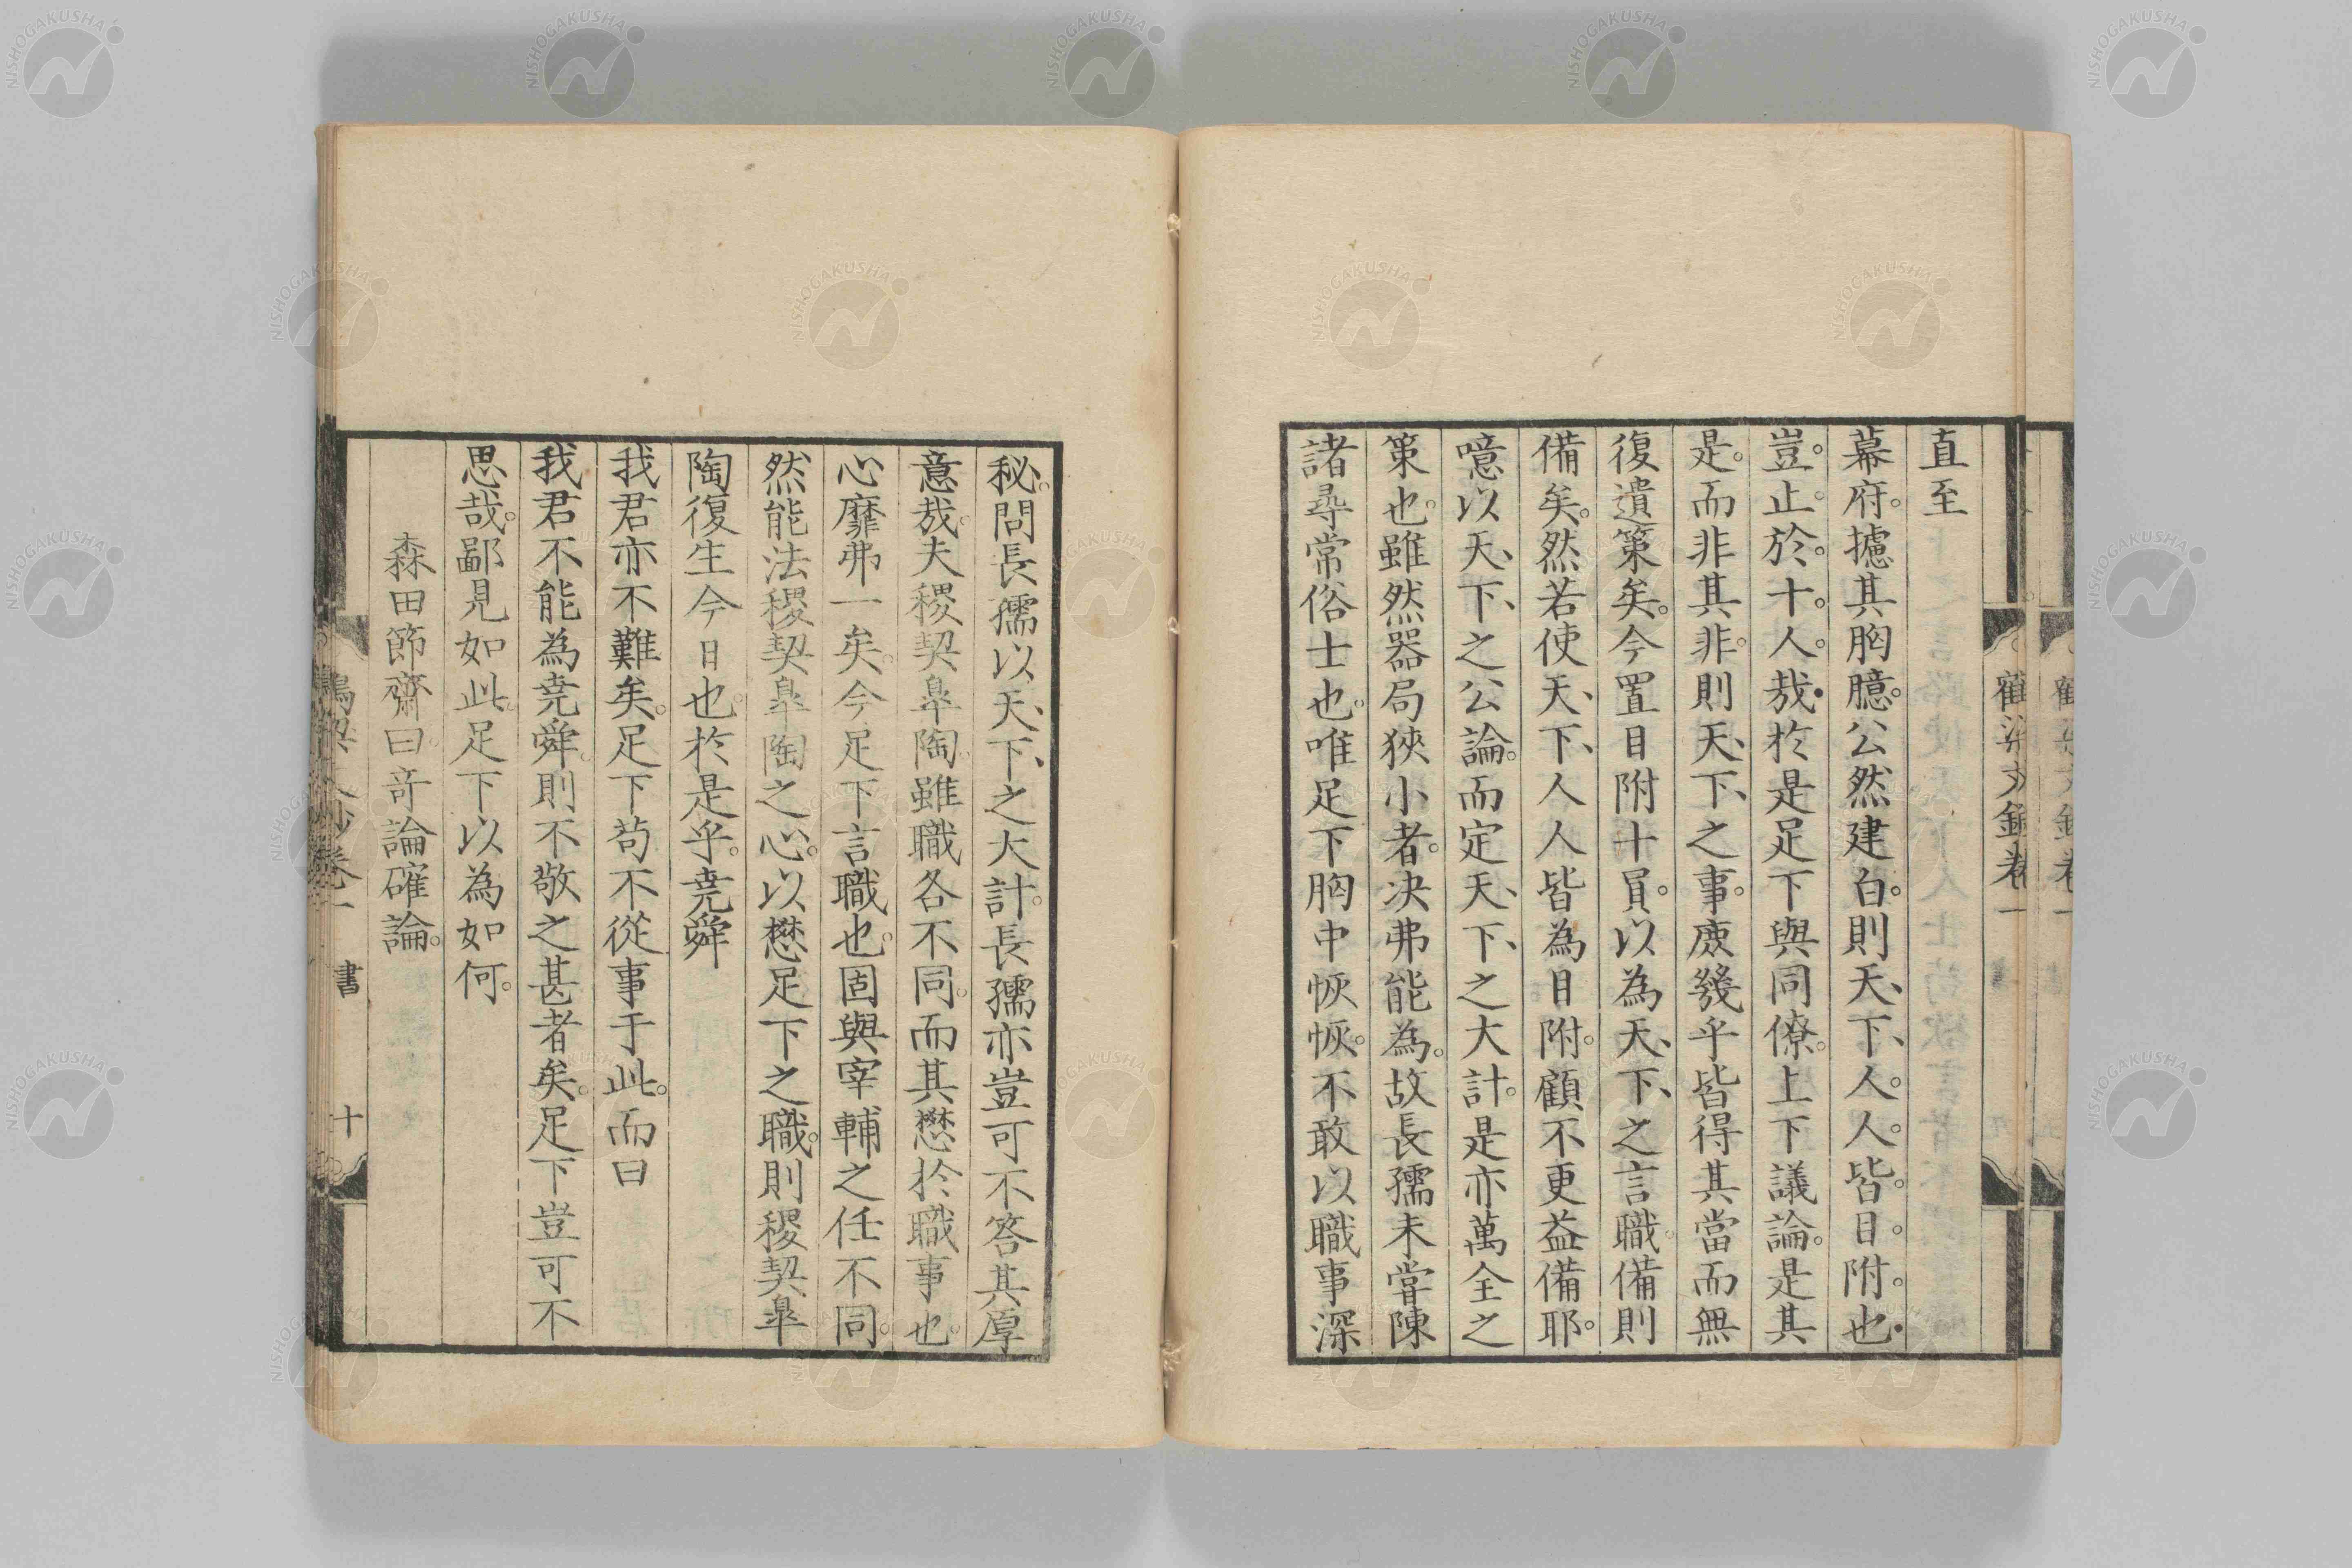 直至
幕府。攄其胸臆。公然建白。則天、下、人。人。皆。目。附。也
豈。止。於。十。人。哉。於是足下與同僚。上下議論。是其
是。而非其非。則天、下、之事。庶幾乎皆得其當而無
復遺策矣。今置目附十員。以為天、下、之言職。備則
備矣。然若使天、下、人人皆為目附。顧不更益備耶。
噫以天、下、之公論。而定天、下、之大計。是亦萬全之
策也。雖然器局狹小者。决弗能為。故長孺未嘗陳
諸尋常俗士也。唯足下胸中恢恢。不敢以職事深
秘。問長孺以天、下、之大計。長孺亦豈可不答其厚
意哉。夫稷契皐陶。雖職各不同。而其懋於職事也。
心靡弗一矣。今足下言職也。固與宰輔之任不同。
然能法稷契皐陶之心。以懋足下之職。則稷契皐
陶復生今日也。於是乎。堯舜
我君亦不難矣。足下苟不從事于此。而曰
我君不能為堯舜。則不敬之甚者矣。足下豈可不
思哉。鄙見如此。足下以為如何。
森田節齋曰。奇論確論。
書 十